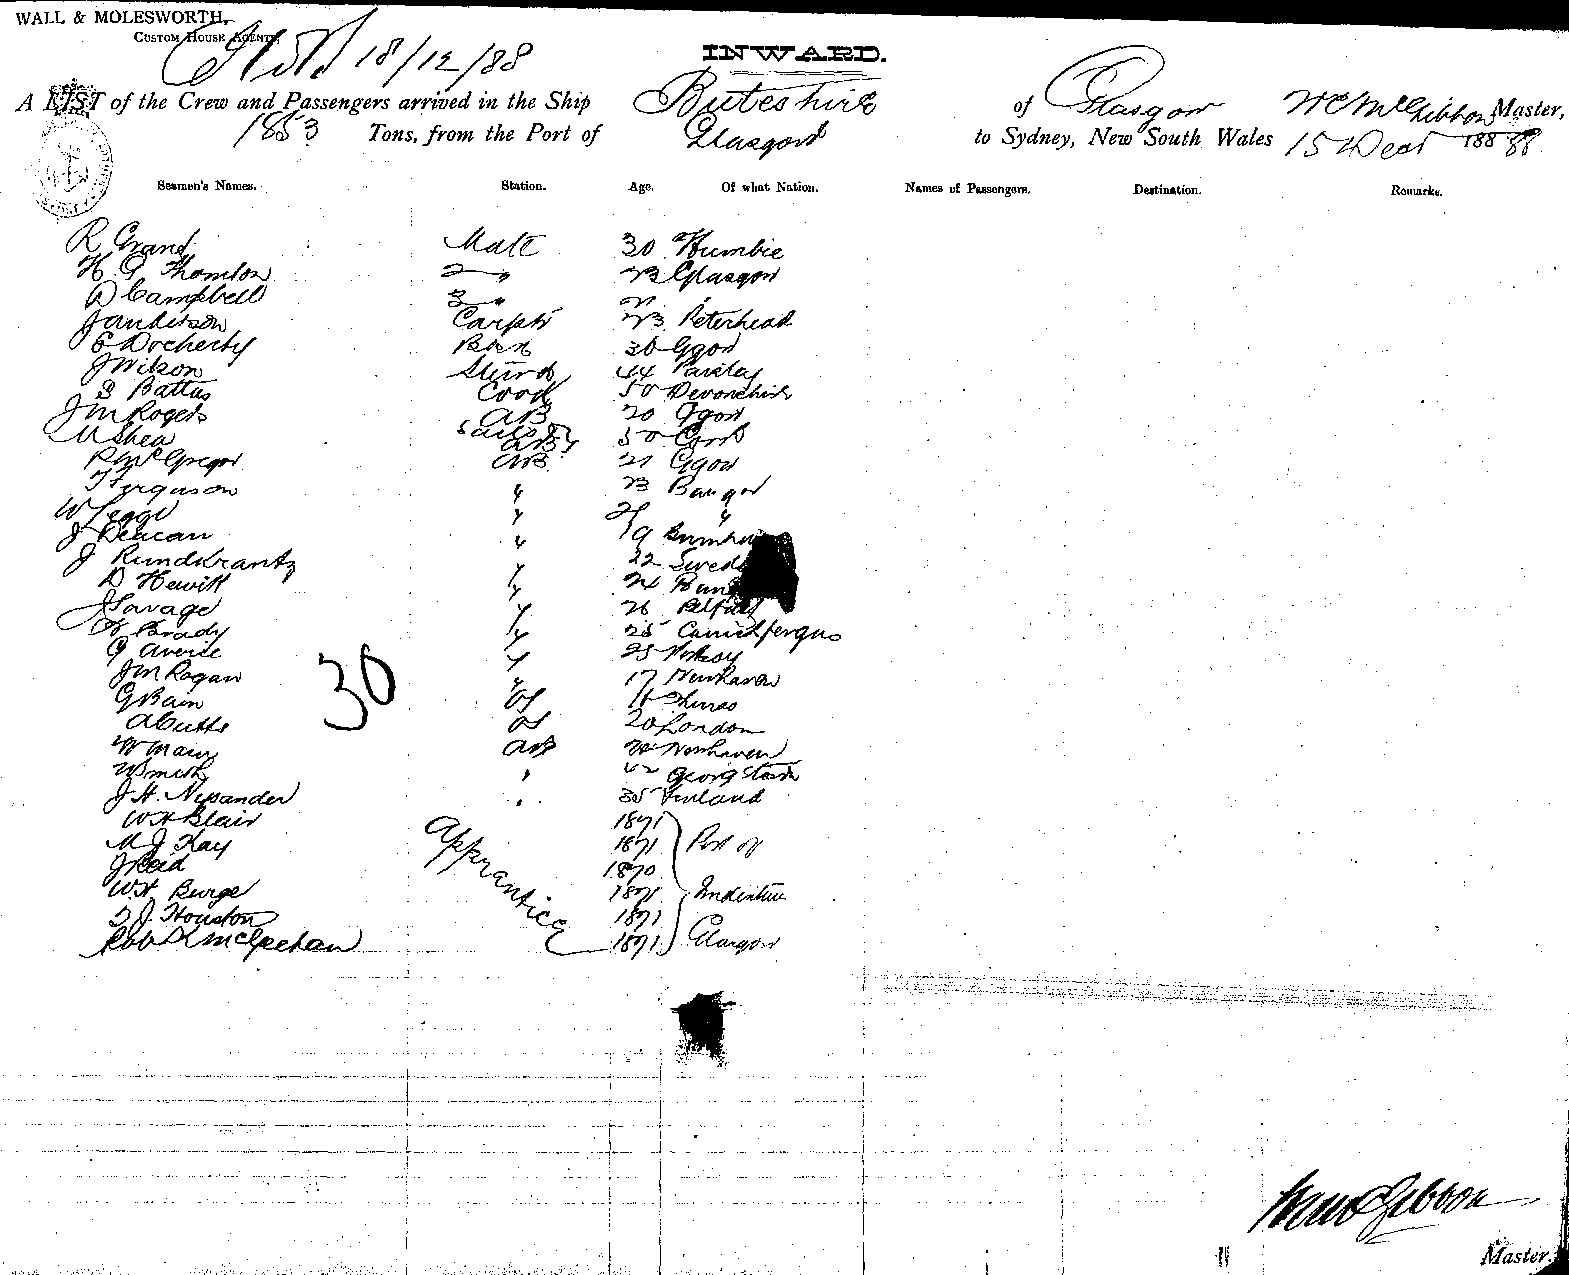 WALL & MOLESWORTH,
CUSTOM HOUSE AGENTS,
18/12/88
INWARD.
A LIST of the Crew and Passengers arrived in the Ship Buteshire of Glasgow Wm McGibbon, Master,
1853 Tons, from the Port of Glasgow to Sydney, New South Wales 15 Decr 1888
Seamen's Names. Station. Age. Of what Nation. Names of Passengers. Destination. Remarks.
R Grand Mate 30 Humbie
H. G Thomson 2 " 23 Glasgow
D Campbell 3 "
Carptr 23 Peterhead
E Docherty Bosn 30 Ggow
J Wilson Stewrd 44 Paisley
Battus Cook 50 Devonshire
J M Rogers AB 20 Ggow
M Shea 50 Cork
R McGregor AB 21 Ggow
Ferguson " 23 Bangor
W Legge " "
J Deacan " 19
J Rundkrantz " 22 Swed
D Hewitt " 24 Ban
J Savage " 26 Belfast
H Brady " 25 Carrickfergus
G Averie " 25
J M Rogan " 17 Newhaven
G Bain OS Thurso
A Cutts OS 20 London
W Marr AB 24 Newhaven
W Smith " 42 Georgetown
J. H. Nysander " 35 Finland
30
W H Blair Apprentices 1871 Port of
M J Kay 1871
J Reid 1870
W. H Burge 1871 Indenture
T J. Houston 1871
Robt K McGeehan 1871 Glasgow
Wm McGibbon
Master.